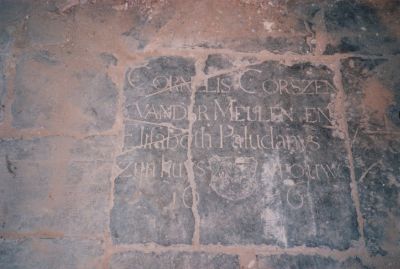 CORNELIS CORSZEN
VANDER MEULEN EN
Elisabeth Paludanys
Zyn huys vrouw
16 6